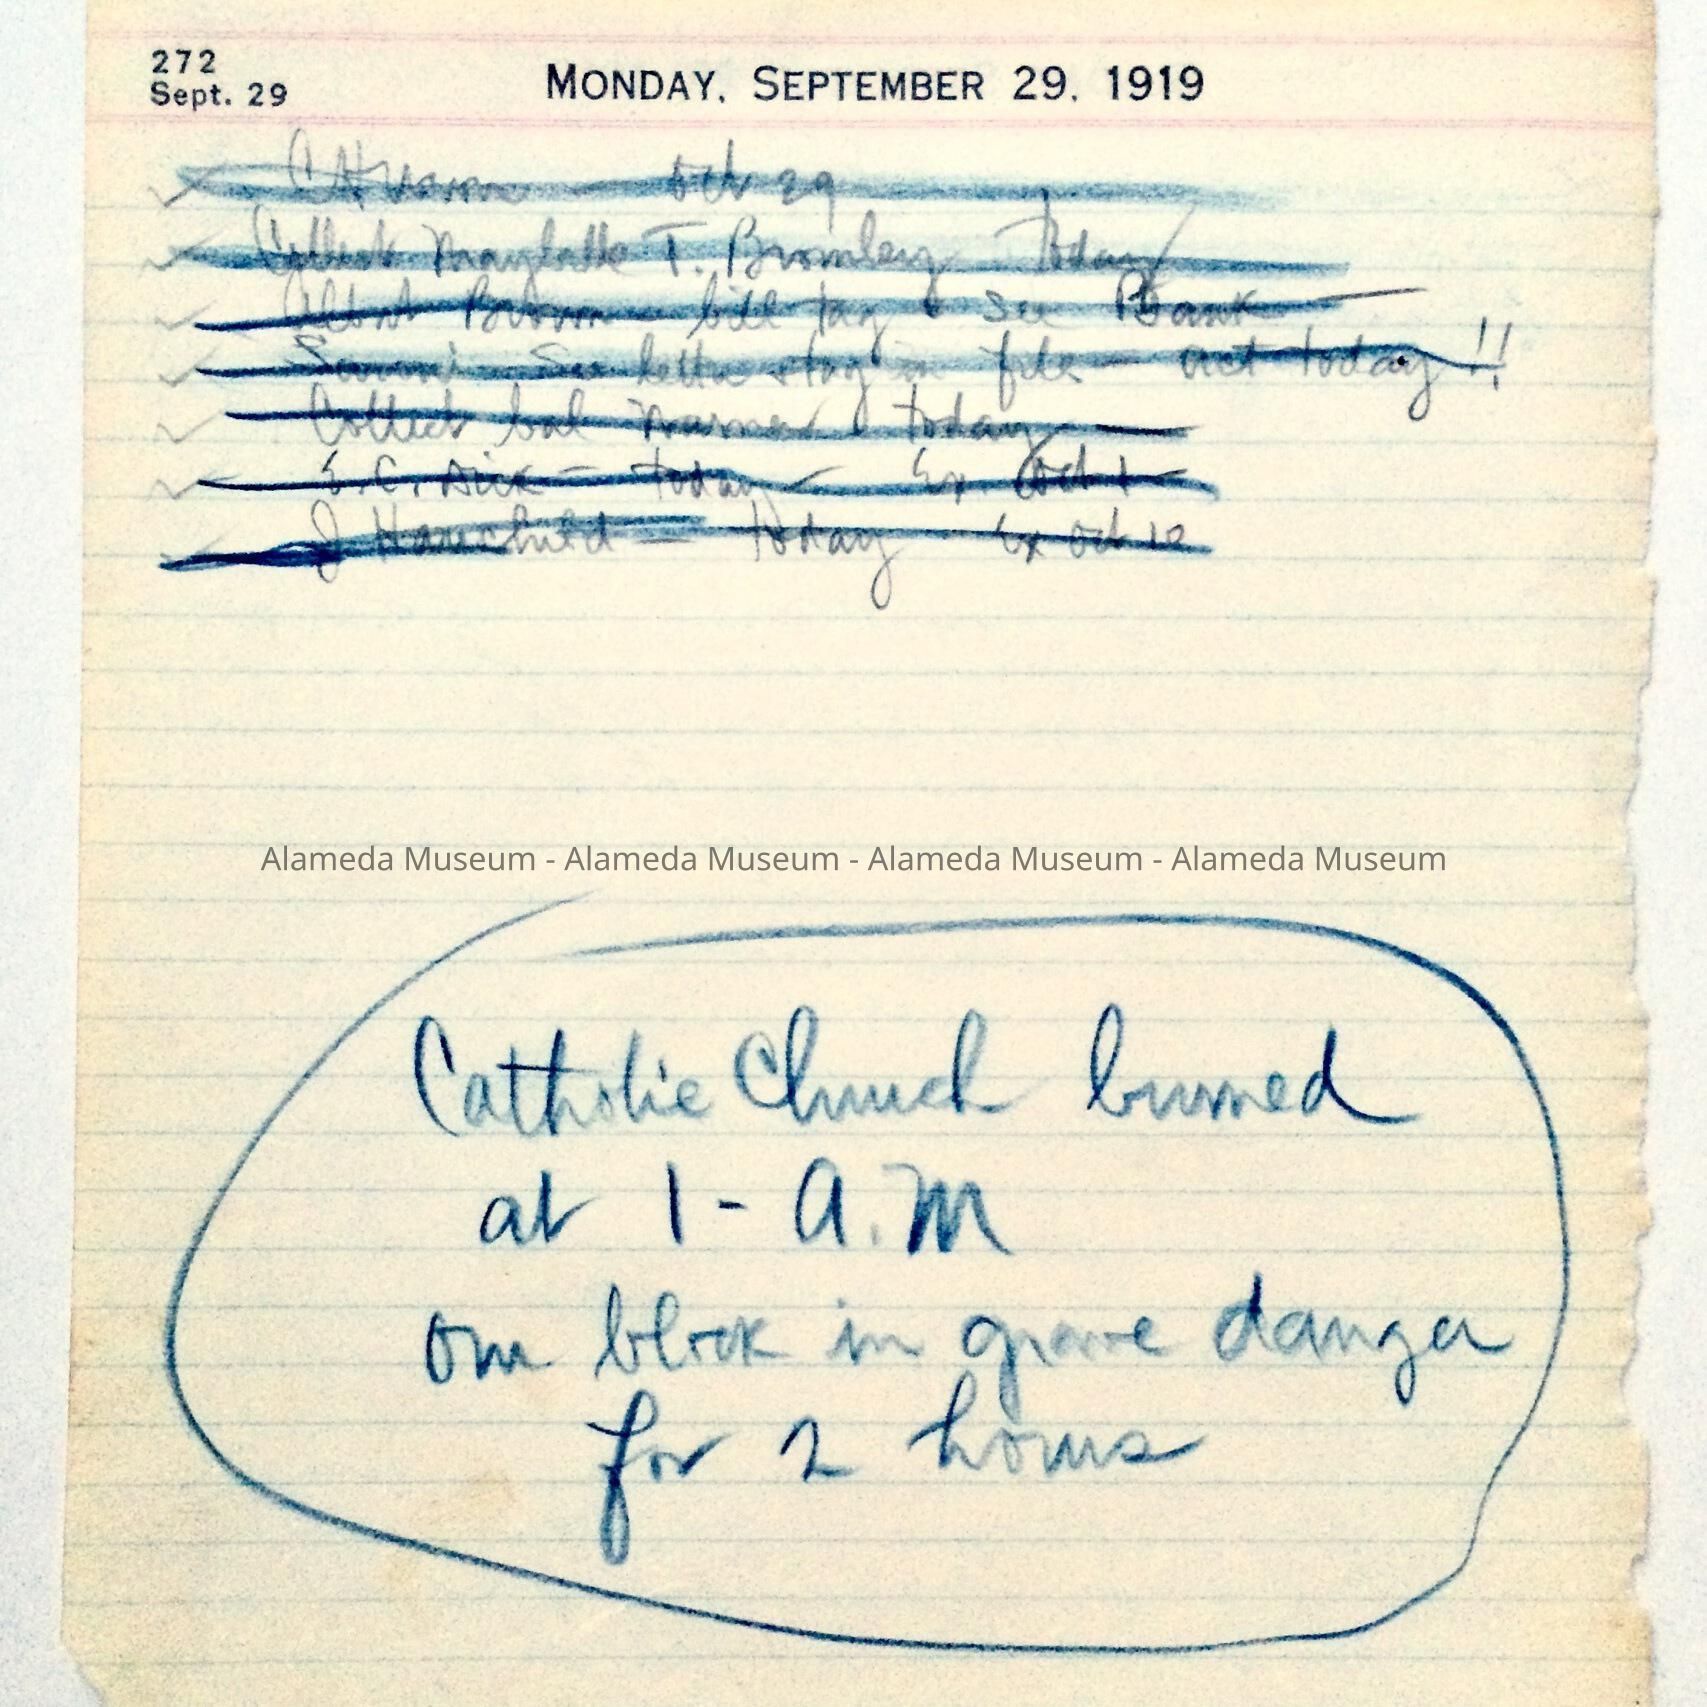 272
Sept. 29
MONDAY, SEPTEMBER 29, 1919
Oct 29
Collect Maybelle T. Bromley Today
Albert Brown - bill tag see Bank
See letter stay in file - act today !!
Collect bal today
E.C. Dick - today - Ex. Oct 1 -
J Hauschild - today Ex Oct 12
Alameda Museum - Alameda Museum - Alameda Museum - Alameda Museum
Catholic Church burned
at 1 - A.M
our block in grave danger
for 2 hours